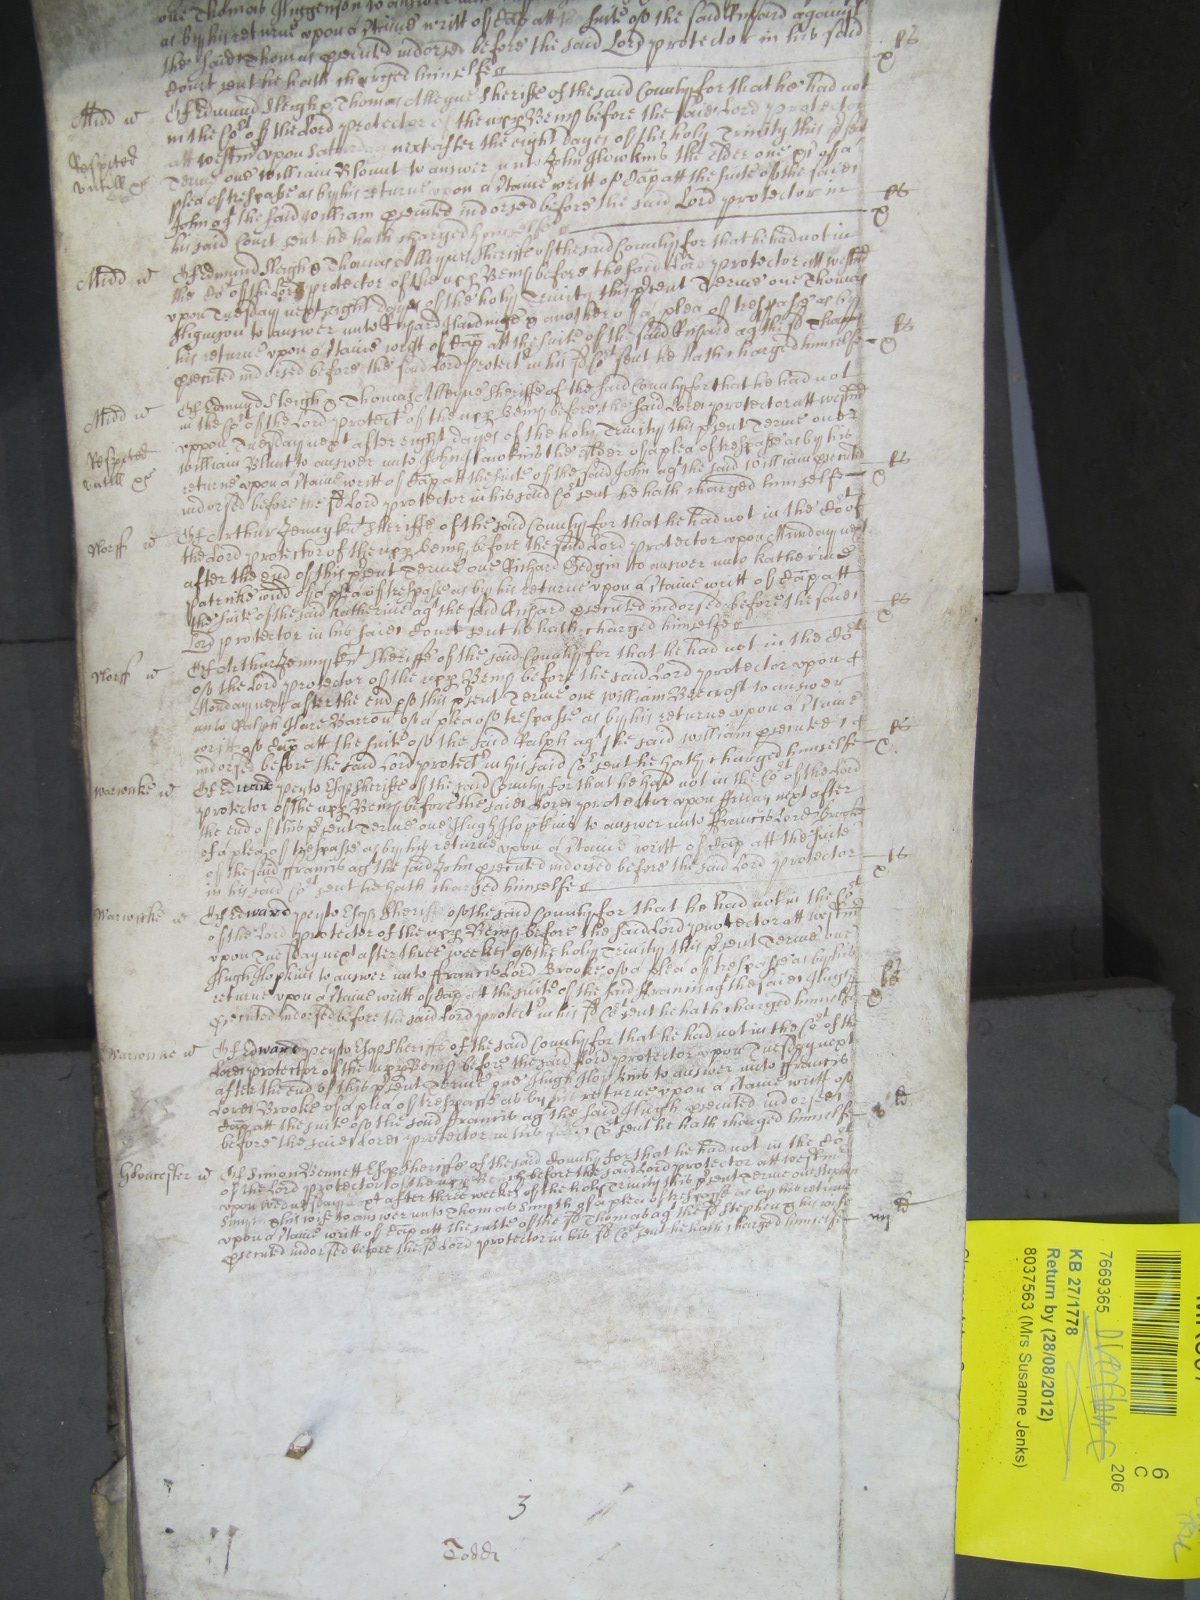 one Thomas Huggenson to answer
as by his returne upon a Latine writt of Cap att the suite of the said Richard against
the said Thomas executed indorsed before the said Lord protector in his said
Court sent he hath charged himselfe
xs
Midd ss Of Edmund Sleigh & Thomas Alleyne Sheriffe of the said County for that he had not
in the Cot of the Lord protector of the upp Bench before the said Lord protector
att Westm upon Saturday next after the eight dayes of the holy Trinity this psent
Respited untill
Terme one William Blount to answer unto John Hawkins the elder one of a
plea of trespasse as by his returne upon a Latine writt of Cap att the suite of the said
John ag the said William executed indorsed before the said Lord protector in
his said Court sent he hath charged himselfe
Midd ss Of Edmund Sleigh & Thomas Alleyne Sheriffe of the said County for that he had not in
the Cot of the Lord protector of the upp Bench before the said Lord protector att Westm
upon Tuesday next eight dayes of the holy Trinity this psent Terme one Thomas
to answer unto Richard & another of a plea of trespasse as by
his returne upon a Latine writt of Cap att the suite of the said Richard ag the sd Thomas
executed indorsed before the said Lord protector in his sd Cot sent he hath charged himselfe
Midd ss Of Edmund Sleigh & Thomas Alleyne Sheriffe of the said County for that he had not
in the Cot of the Lord protector of the upp Bench before the said Lord protector att Westm
upon Tuesday next after eight dayes of the holy Trinity this psent Terme one
Respited untill
William Blunt to answer unto John Hawkins the elder of a plea of trespasse as by his
returne upon a Latine writt of Cap att the suite of the said John ag the said William executed
indorsed before the sd Lord protector in his said Cot sent he hath charged himselfe
Norff ss Of Arthur Jenny knt Sheriffe of the said County for that he had not in the Cot of
the Lord protector of the upp Bench before the said Lord protector upon Munday next
after the end of this psent Terme one Richard to answer unto Katherine
Patricke of a plea of trespasse as by his returne upon a Latine writt of Cap att
the suite of the said Katherine ag the said Richard executed indorsed before the said
Lord protector in his said Court sent he hath charged himselfe
Norff ss Of Arthur Jenny knt Sheriffe of the said County for that he had not in the Cot
of the Lord protector of the upp Bench before the said Lord protector upon
Monday next after the end of this psent Terme one William Beecroft to answer
unto Ralph Hare Barront of a plea of trespasse as by his returne upon a Latine
writt of Cap att the suite of the said Ralph ag the said William executed
indorsed before the said Lord protector in his said Cot sent he hath charged himselfe
Warwicke ss Of Edward peyto Esqr Sheriffe of the said County for that he had not in the Cot of the Lord
protector of the upp Bench before the said Lord protector upon ffriday next after
the end of this psent Terme one Hugh Hopkins to answer unto Francis Lord Brooke
of a plea of trespasse as by his returne upon a Latine writt of Cap att the suite
of the said ffrancis ag the said John executed indorsed before the said Lord protector
in his said Cot sent he hath charged himselfe
Warwicke ss Of Edward peyto Esqr Sheriffe of the said County for that he had not in the Cot
of the Lord protector of the upp Bench before the said Lord protector att Westm
upon Tuesday next after three weekes of the holy Trinity this psent Terme one
Hugh Hopkins to answer unto ffrancis Lord Brooke of a plea of trespasse as by his
returne upon a Latine writt of Cap att the suite of the said ffrancis ag the said Hugh
executed indorsed before the said Lord protect in his sd Cot sent he hath charged himselfe
Warwicke ss Of Edward peyto Esqr Sheriffe of the said County for that he had not in the Cot of the
Lord protector of the upp Bench before the said Lord protector upon Tuesday next
after the end of this psent Terme one Hugh Hopkins to answer unto ffrancis
Lord Brooke of a plea of trespasse as by his returne upon a Latine writt of
Cap att the suite of the said Francis ag the said Hugh executed indorsed
before the said Lord protector in his said Cot sent he hath charged himselfe
Gloucester ss Of Simon Bennett Esqr Sheriffe of the said County for that he had not in the Cot
of the Lord protector of the upp Bench before the said Lord protector att Westm
upon next after three weekes of the holy Trinity this psent Terme one Stephen
Smith & his wife to answer unto Thomas Smyth of a plea of trespasse as by his returne
upon a Latine writt of Cap att the suite of the sd Thomas ag the sd Stephen & his wife
executed indorsed before the sd Lord protector in his sd Cot sent he hath charged himselfe
3
Todd
7669365
KB 27/1778
Return by (28/08/2012)
8037563 (Mrs Susanne Jenks)
206
6
C